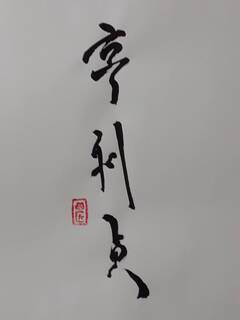 亨利貞